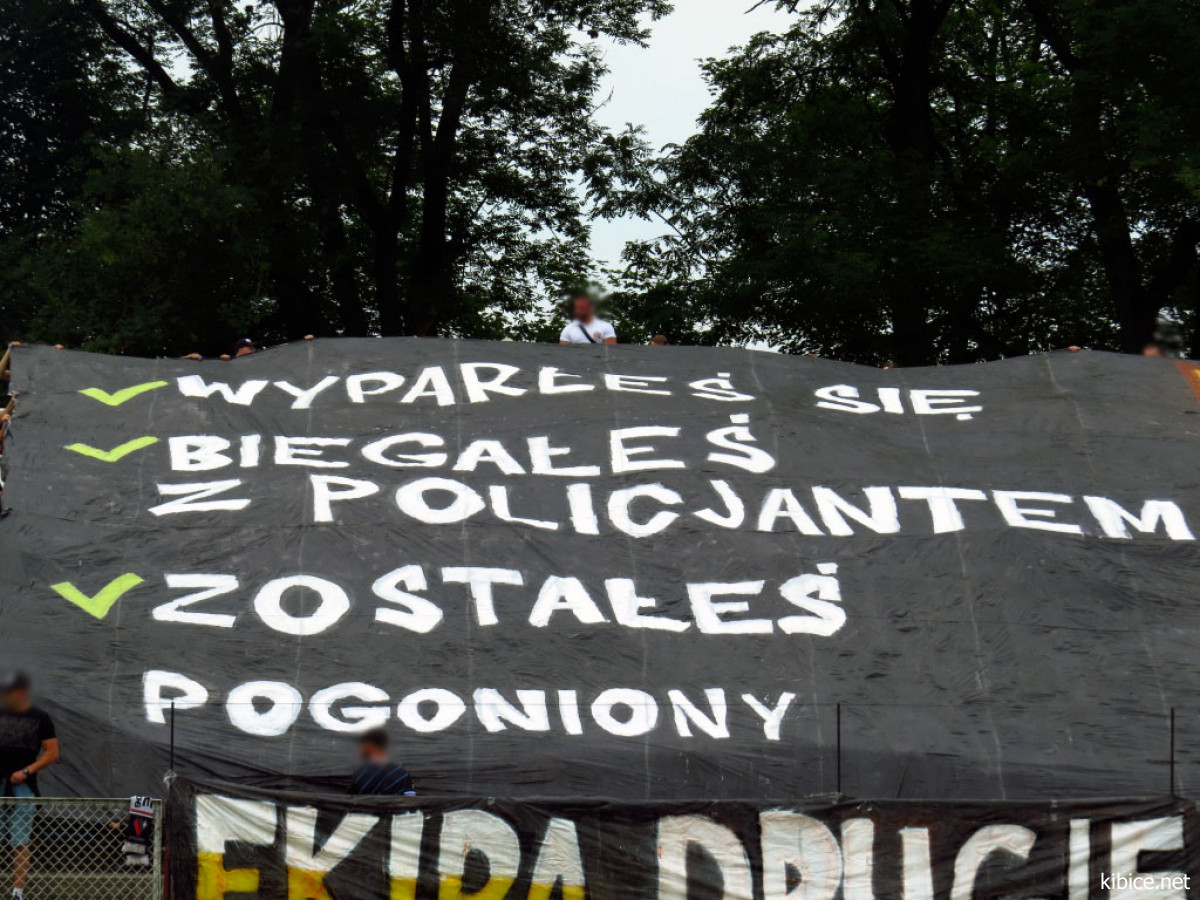 WYPARŁEŚ SIĘ
BIEGAŁEŚ
Z POLICJANTEM
ZOSTAŁEŚ
POGONIONY
EKIPA
kibice.net